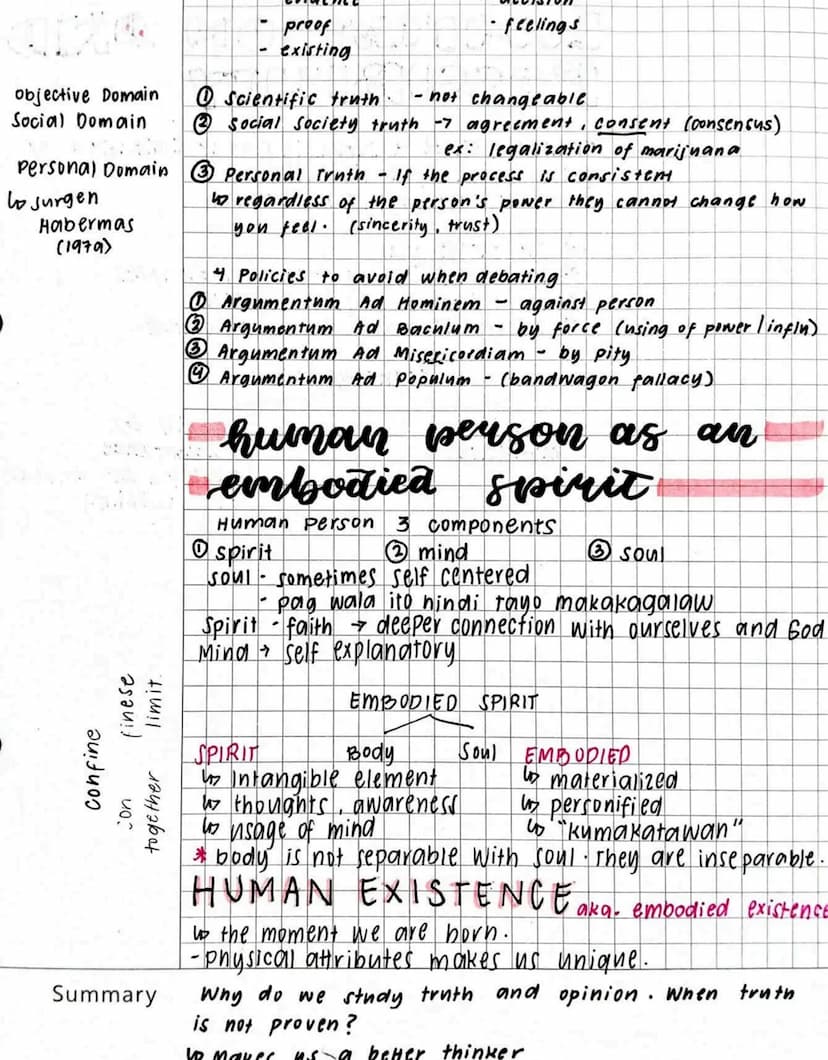 - proof
- feelings
- existing
Objective Domain
Social Domain
Personal Domain
↳ Jurgen
Habermas
(1979)
① Scientific truth. - not changeable
② Social Society truth → agreement, consent (consensus)
ex: legalization of marijuana
③ Personal Truth - If the process is consistent
↳ regardless of the person's power they cannot change how
you feel. (sincerity, trust)
4 Policies to avoid when debating
① Argumentum Ad Hominem - against person
② Argumentum Ad Baculum - by force (using of power / influ)
③ Argumentum Ad Misericordiam - by pity
④ Argumentum Ad Populum - (bandwagon fallacy)
human person as an
embodied spirit
Human Person 3 components
① spirit ② mind ③ soul
soul - sometimes self centered
- pag wala ito hindi tayo makakagalaw
Spirit - faith → deeper connection with ourselves and God
Mind → self explanatory
confine
ion finese
together limit.
EMBODIED SPIRIT
SPIRIT Body Soul EMBODIED
↳ Intangible element ↳ materialized
↳ thoughts, awareness ↳ personified
↳ usage of mind ↳ "kumakatawan"
* body is not separable with soul. They are inseparable.
HUMAN EXISTENCE aka. embodied existence
↳ the moment we are born.
- physical attributes makes us unique.
Summary
Why do we study truth and opinion. When truth
is not proven?
↳ Makes us a better thinker